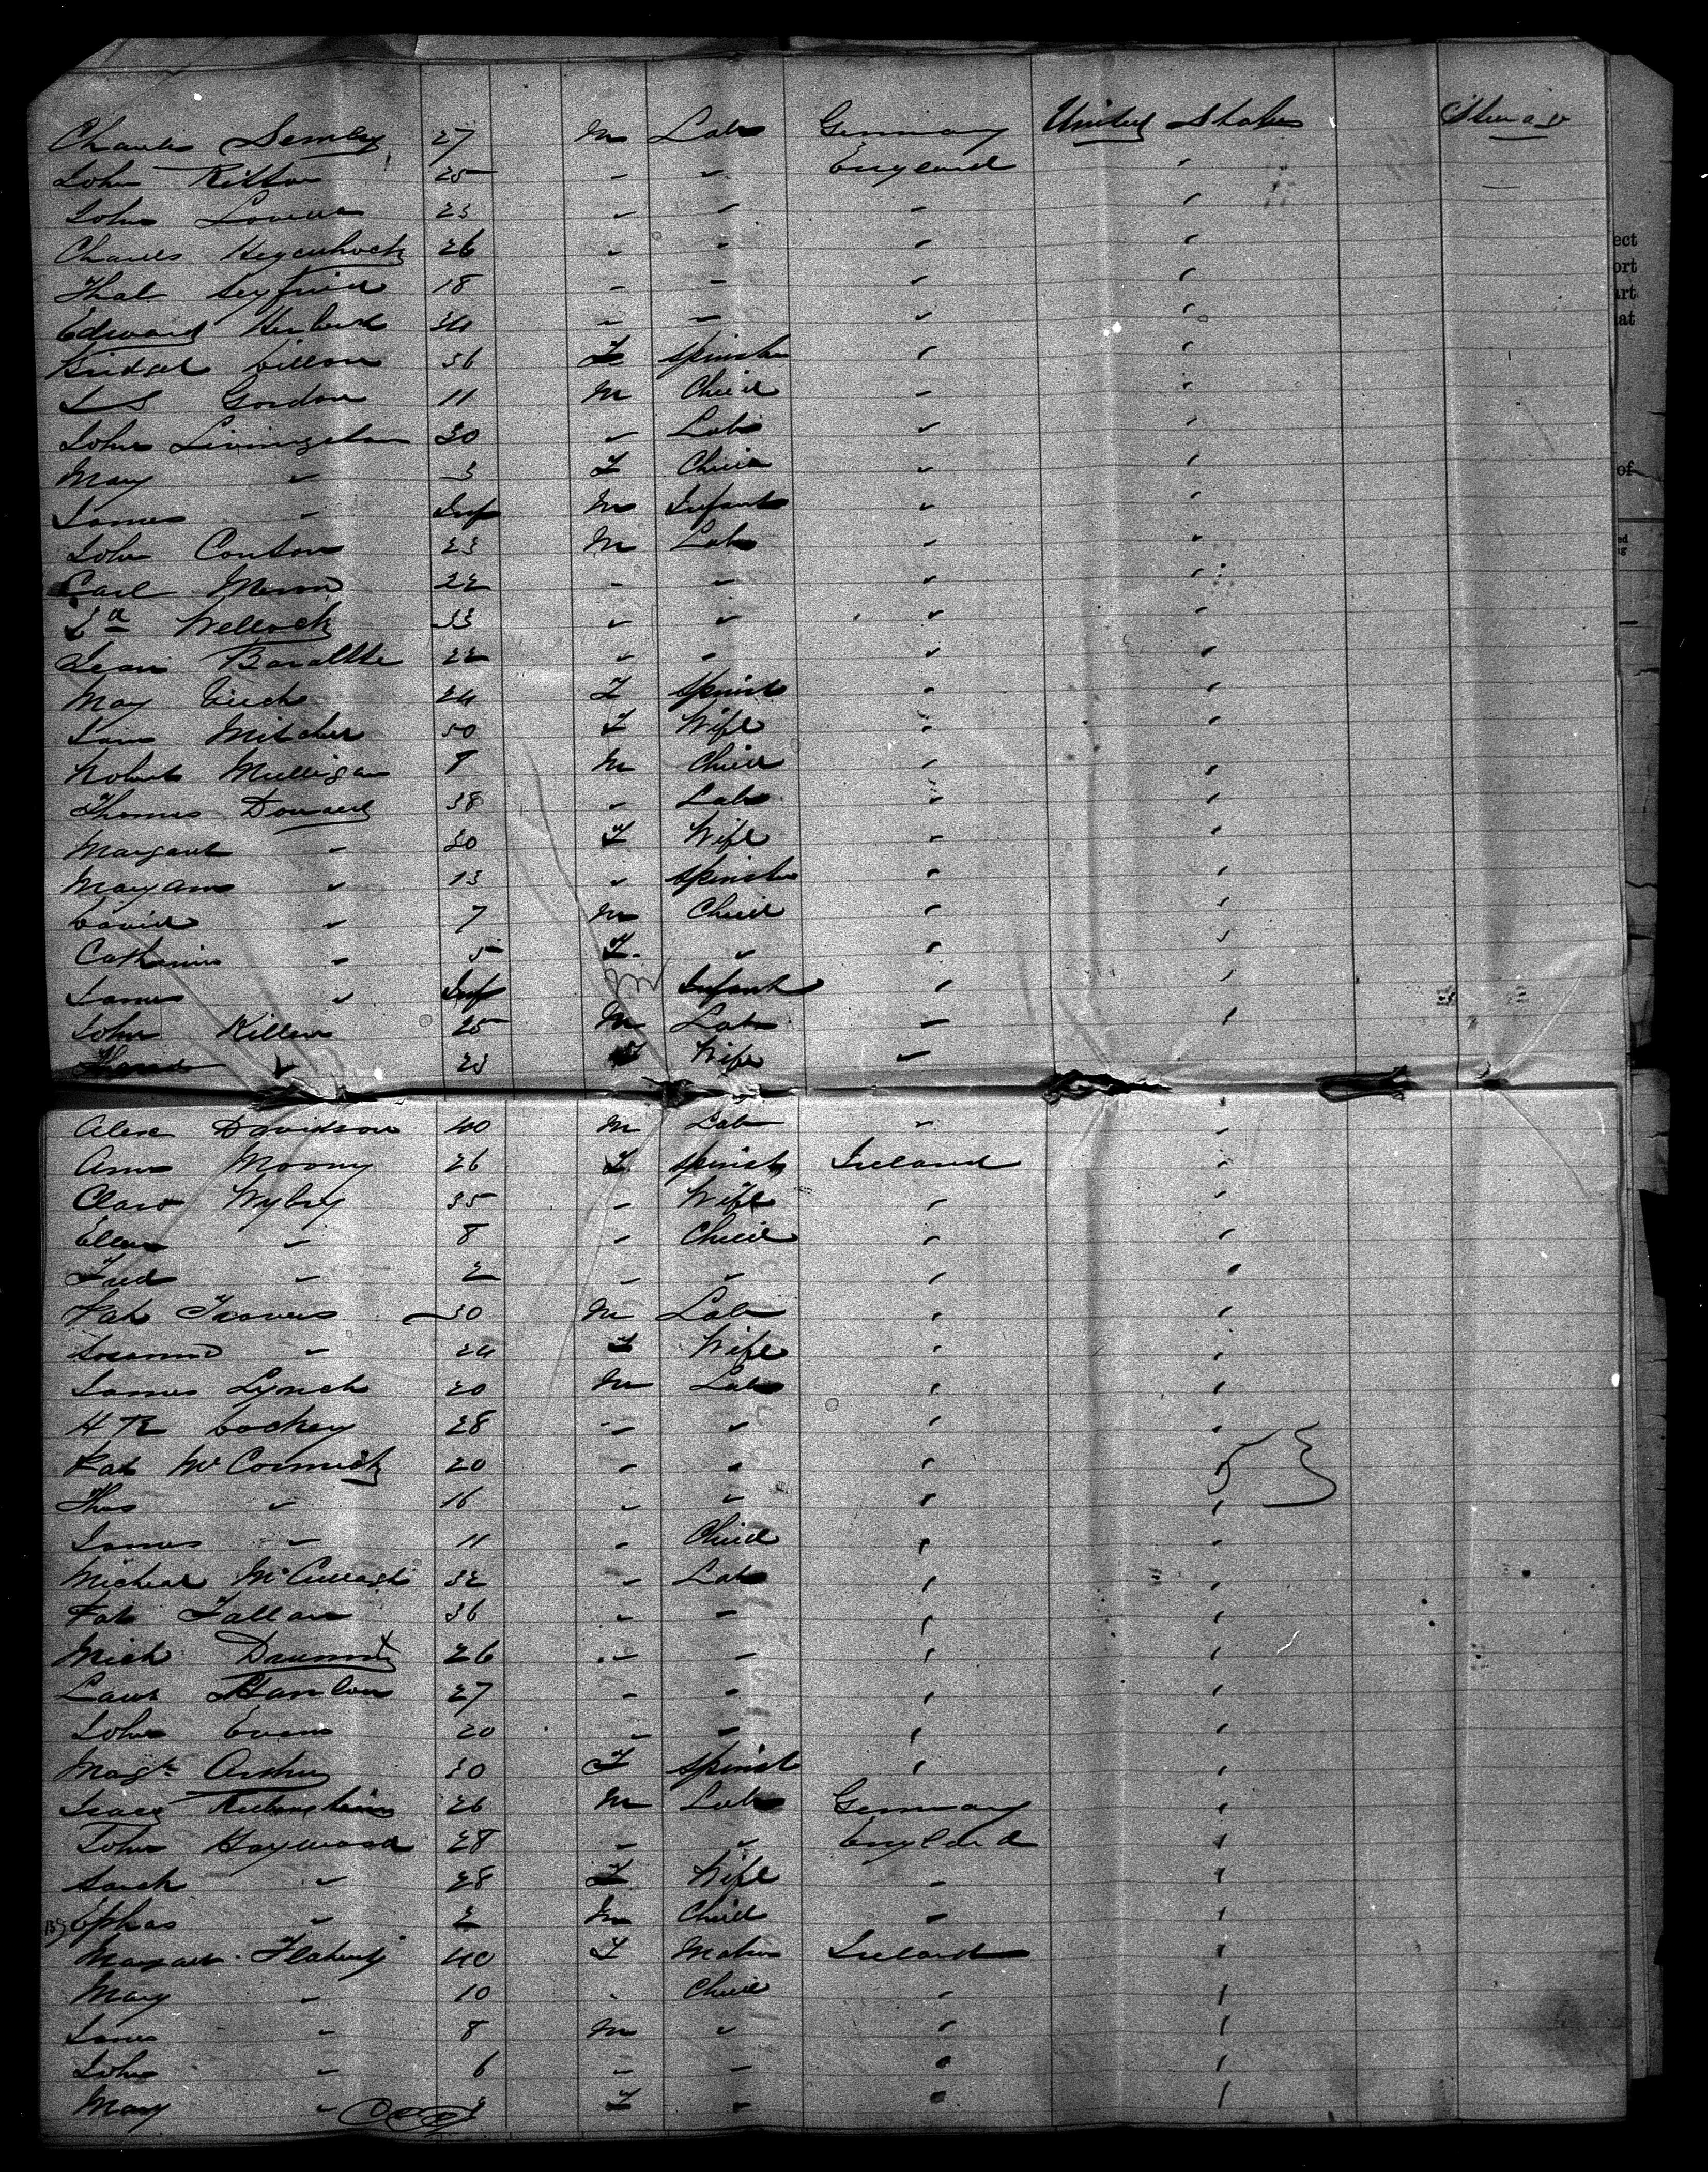 Charles Semley 27 M Lab Germany United States Steerage
John Ritton 25 " " England "
John 23 " " " "
Charles 26 " " " "
Thal Seyfried 18 " " " "
Edward Herbert 24 " " " "
Bridget Dillon 36 F Spinster " "
L S Gordon 11 M Child " "
John Livingston 30 " Lab " "
Mary " 3 F Child " "
James " Inf M Infant " "
John Conton 23 M Lab " "
Carl 22 " " " "
Wellock 33 " " " "
Jean 22 " " " "
May 24 F Spinst " "
Mitcher 50 F Wife " "
Robert Mulligan 8 M Child " "
Thomas 38 " Lab " "
Margaret " 30 F Wife " "
Maryann " 13 " Spinster " "
David " 7 M Child " "
Catherine " 5 F " " "
James " Inf M Infant " "
John Killen 25 M Lab " "
" 23 F Wife "
Alex Davidson 40 M Lab " "
Ann Moony 26 F Spinst Ireland "
Clara Wybry 35 " Wife " "
Ellen " 8 " Child " "
Fred " 2 " " " "
Pat Travers 30 M Lab " "
Rosanna " 24 F Wife " "
James Lynch 20 M Lab " "
H R Dockey 28 " " " "
Pat McCormick 20 " " " "
53
Thos " 16 " " " "
James " 11 " Child " "
Micheal 32 " Lab " "
Pat Fallan 36 " " " "
Mich 26 " " " "
Hanlon 27 " " " "
John Evans 20 " " " "
Magt Arthur 30 F Spinst " "
Isaac 26 M Lab Germany "
John Haywood 28 " " England "
Sarah " 28 F Wife " "
Ephas " 2 M Child " "
Margaret Flaherty 40 F Ireland "
Mary " 10 " Child " "
James " 8 M " " "
John " 6 " " " "
Mary " 3 F " " "
ect
ort
art
at
of